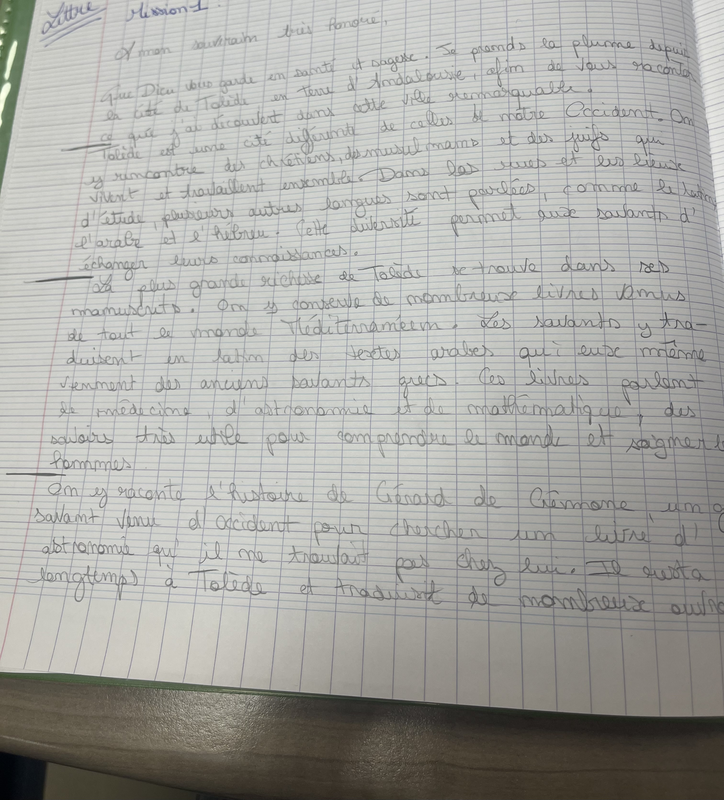 Lettre Mission 1
A mon souverain très
Que Dieu vous garde en santé et sagesse. Je prends la plume depuis
la cité de Tolède en terre d'Andalousie, afin de vous raconter
ce que j'ai découvert dans cette ville remarquable.
Tolède est une cité différente de celles de notre Occident. On
y rencontre des chrétiens, de musulmans et des juifs qui
vivent et travaillent ensemble. Dans les rues et les lieux
d'étude, plusieurs autres langues sont parlées, comme le
l'arabe et l'hébreu. Cette diversité permet aux savants d'
échanger leurs connaissances.
La plus grande richesse de Tolède se trouve dans ses
manuscrits. On y conserve de nombreux livres venus
de tout le monde Méditerranéen. Les savants y tra-
duisent en latin des textes arabes qui eux même
viennent des anciens savants grecs. Ces livres parlent
de médecine, d'astronomie et de mathématique, des
savoirs très utile pour comprendre le monde et soigner
hommes
On y raconte l'histoire de Gérard de Crémone, un
savant venu d'occident pour chercher un livre d'
astronomie qu'il ne trouvait pas chez lui. Il resta
longtemps à Tolède et traduisit de nombreux